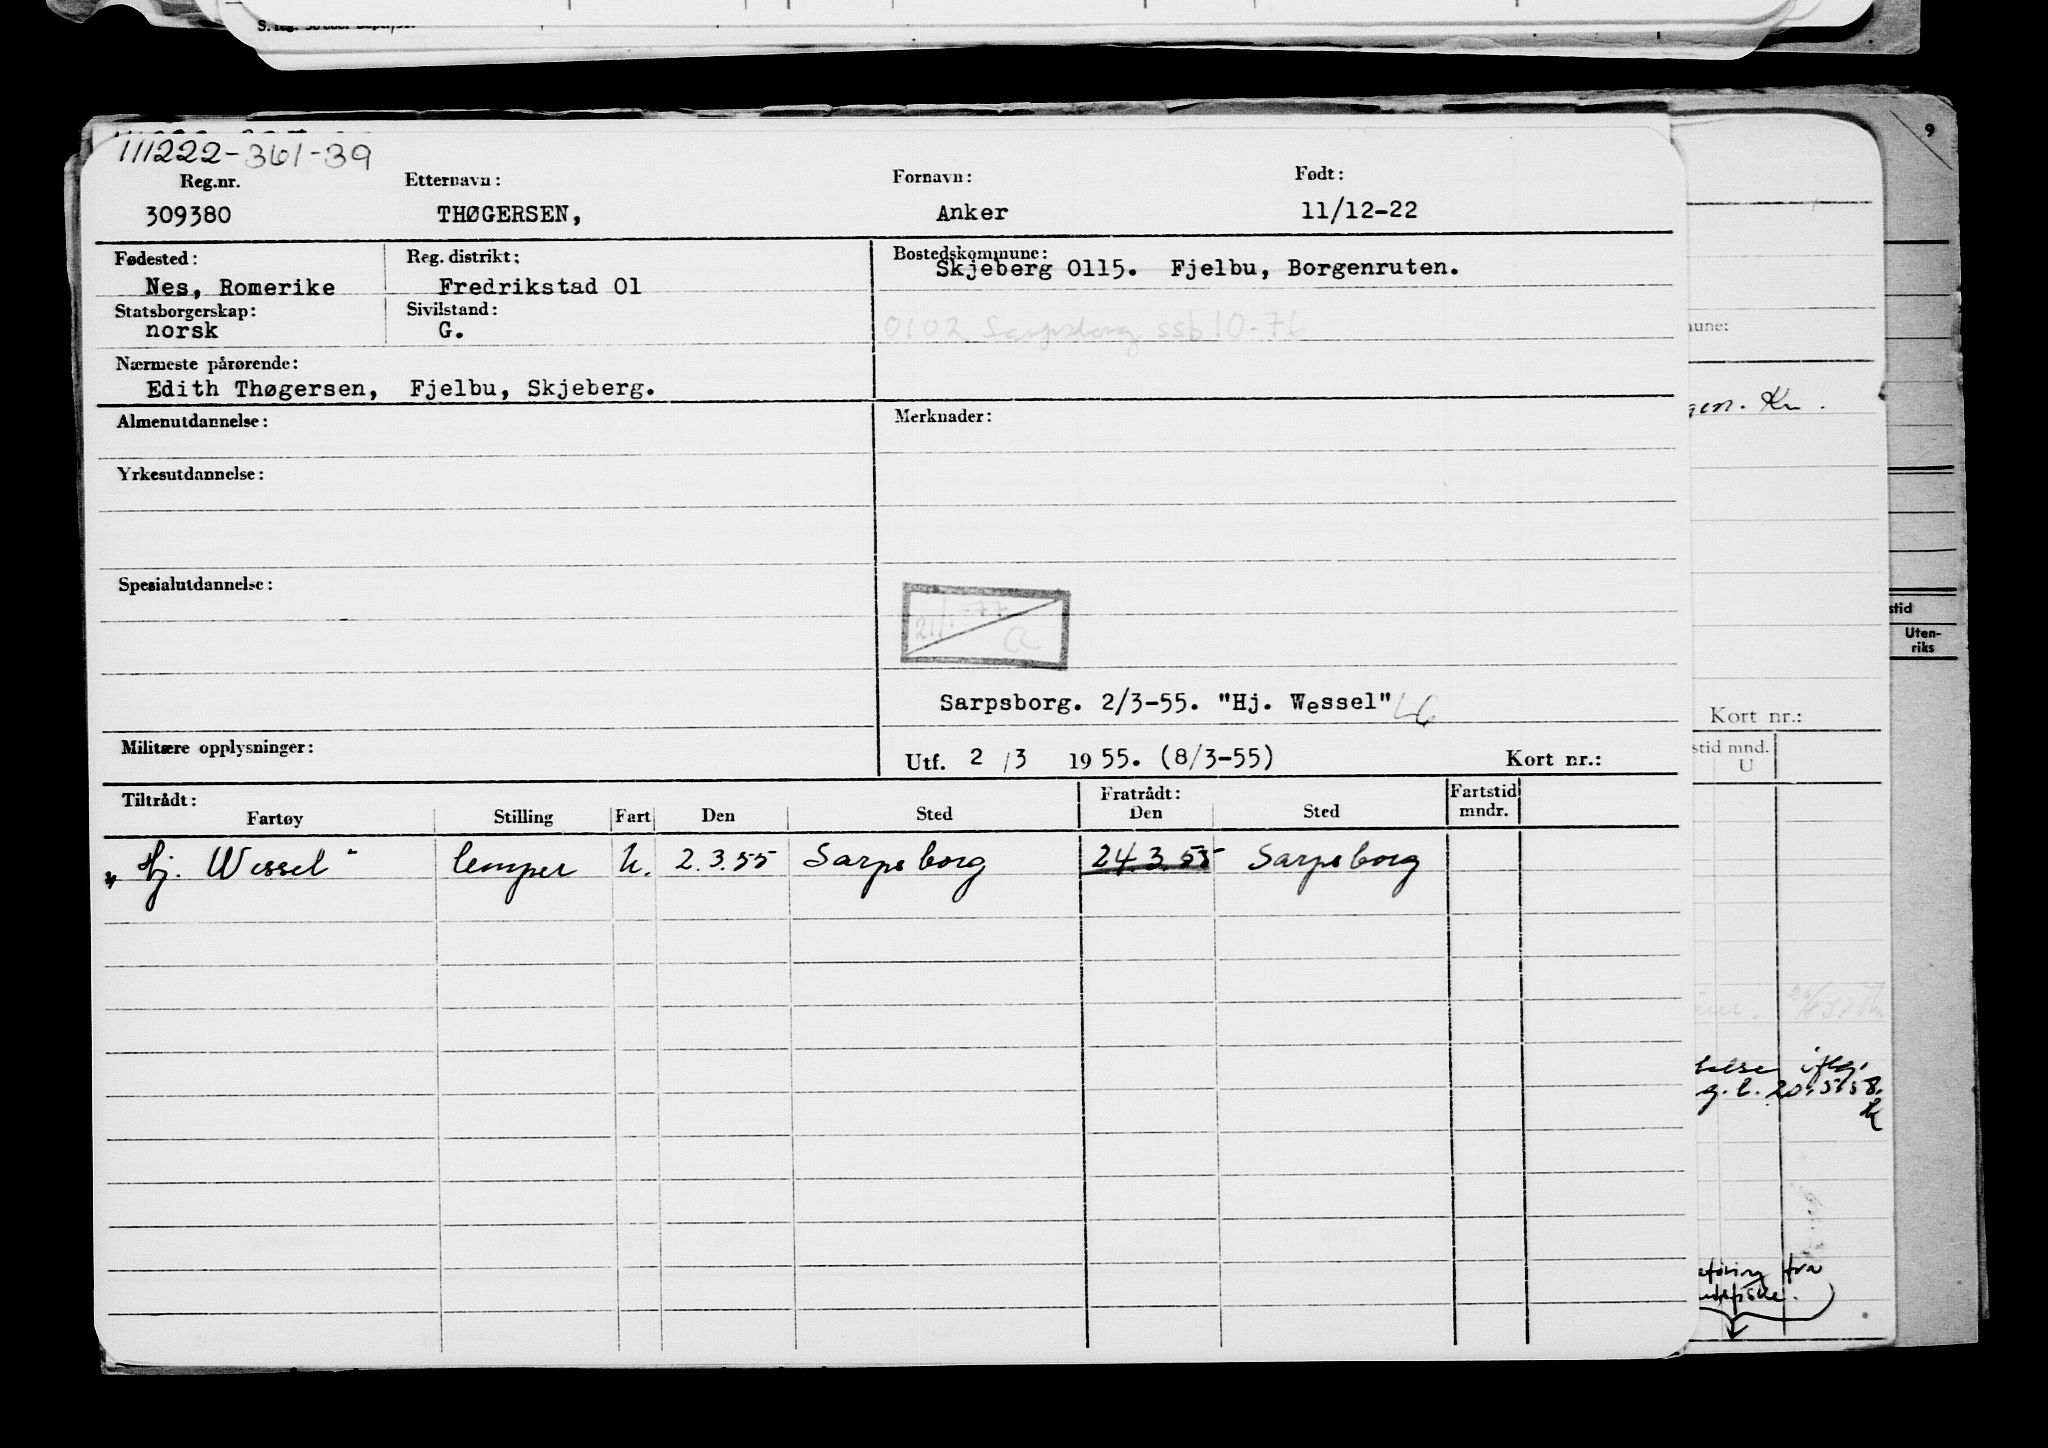 111222-361-39
Reg.nr. Etternavn: Fornavn: Født:
309380 THØGERSEN, Anker 11/12-22
Fødested: Reg. distrikt: Bostedskommune:
Nes, Romerike Fredrikstad 01 Skjeberg 0115. Fjelbu, Borgenruten.
Statsborgerskap: Sivilstand:
norsk G. 0102 Sarpsborg ssb 10-76
Nærmeste pårørende:
Edith Thøgersen, Fjelbu, Skjeberg.
Almenutdannelse: Merknader:
Yrkesutdannelse:
Spesialutdannelse:
Sarpsborg. 2/3-55. "Hj. Wessel"
Militære opplysninger: Utf. 2/3 1955. (8/3-55) Kort nr.:
Tiltrådt: Fratrådt: Fartstid
Fartøy Stilling Fart Den Sted Den Sted mndr.
"Hj. Wessel" lemper U. 2.3.55 Sarpsborg 24.3.55 Sarpsborg
9
Uten-
riks
Kort nr.:
stid mnd.
U
20.5.58.
fra